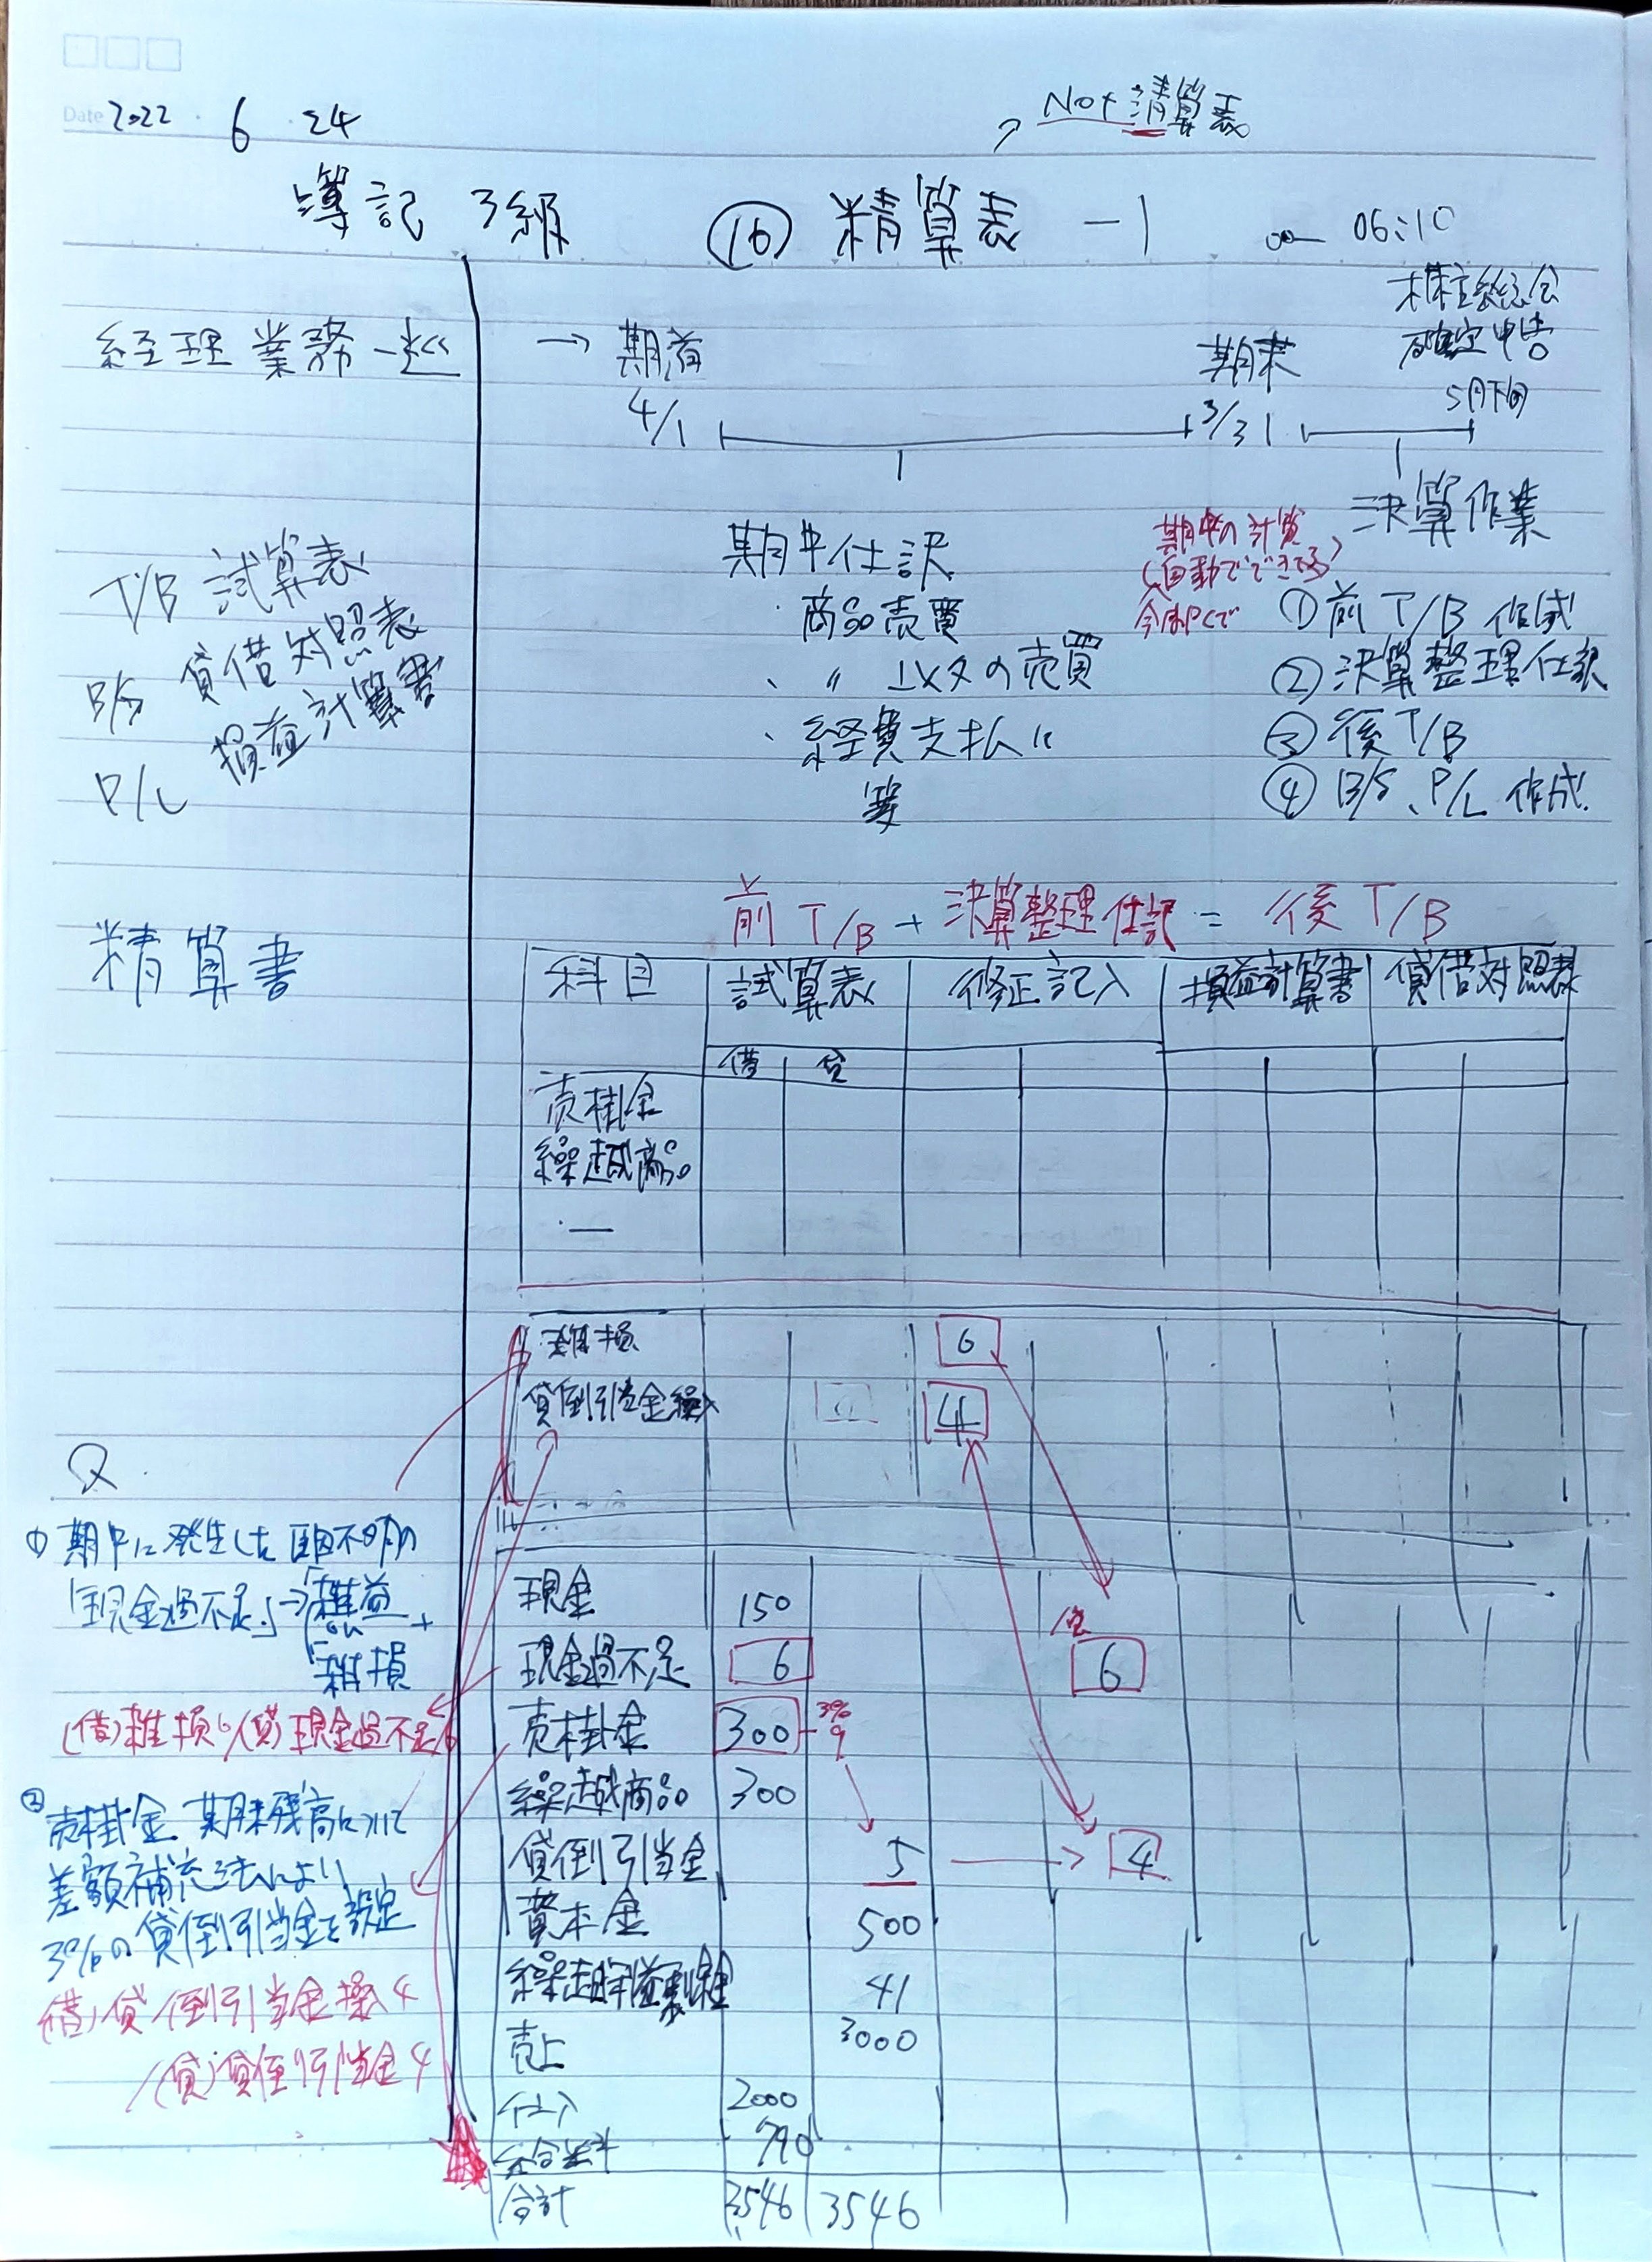 Date 2022 . 6 . 24
Not 清算表
簿記 3級 ⑯ 精算表 -1
06:10
株主総会
確定申告
5月下旬
経理業務一巡
→ 期首
4/1
期末
3/31
T/B 試算表
B/S 貸借対照表
P/L 損益計算書
期中仕訳
・商品売買
、〃 以外の売買
、経費支払い
等
期中の計算
(自動でできてる)
決算作業
①前 T/B 作成
②決算整理仕訳
③後 T/B
④B/S、P/L 作成
精算書
前 T/B + 決算整理仕訳 = 後 T/B
科目 試算表 修正記入 損益計算書 貸借対照表
借 貸
売掛金
繰越商品
雑損 6
貸倒引当金繰入 4
Q
① 期中に発生した原因不明の
「現金過不足」→「雑益
or
「雑損
(借)雑損6/(貸)現金過不足6
② 売掛金 期末残高について
差額補充法により
3%の貸倒引当金を設定
(借)貸倒引当金繰入4
/(貸)貸倒引当金4
現金 150
現金過不足 6 貸 6
売掛金 300 3% 9
繰越商品 300
貸倒引当金 5 → 4
資本金 500
繰越利益剰余金 41
売上 3000
仕入 2000
790
合計 3546 3546